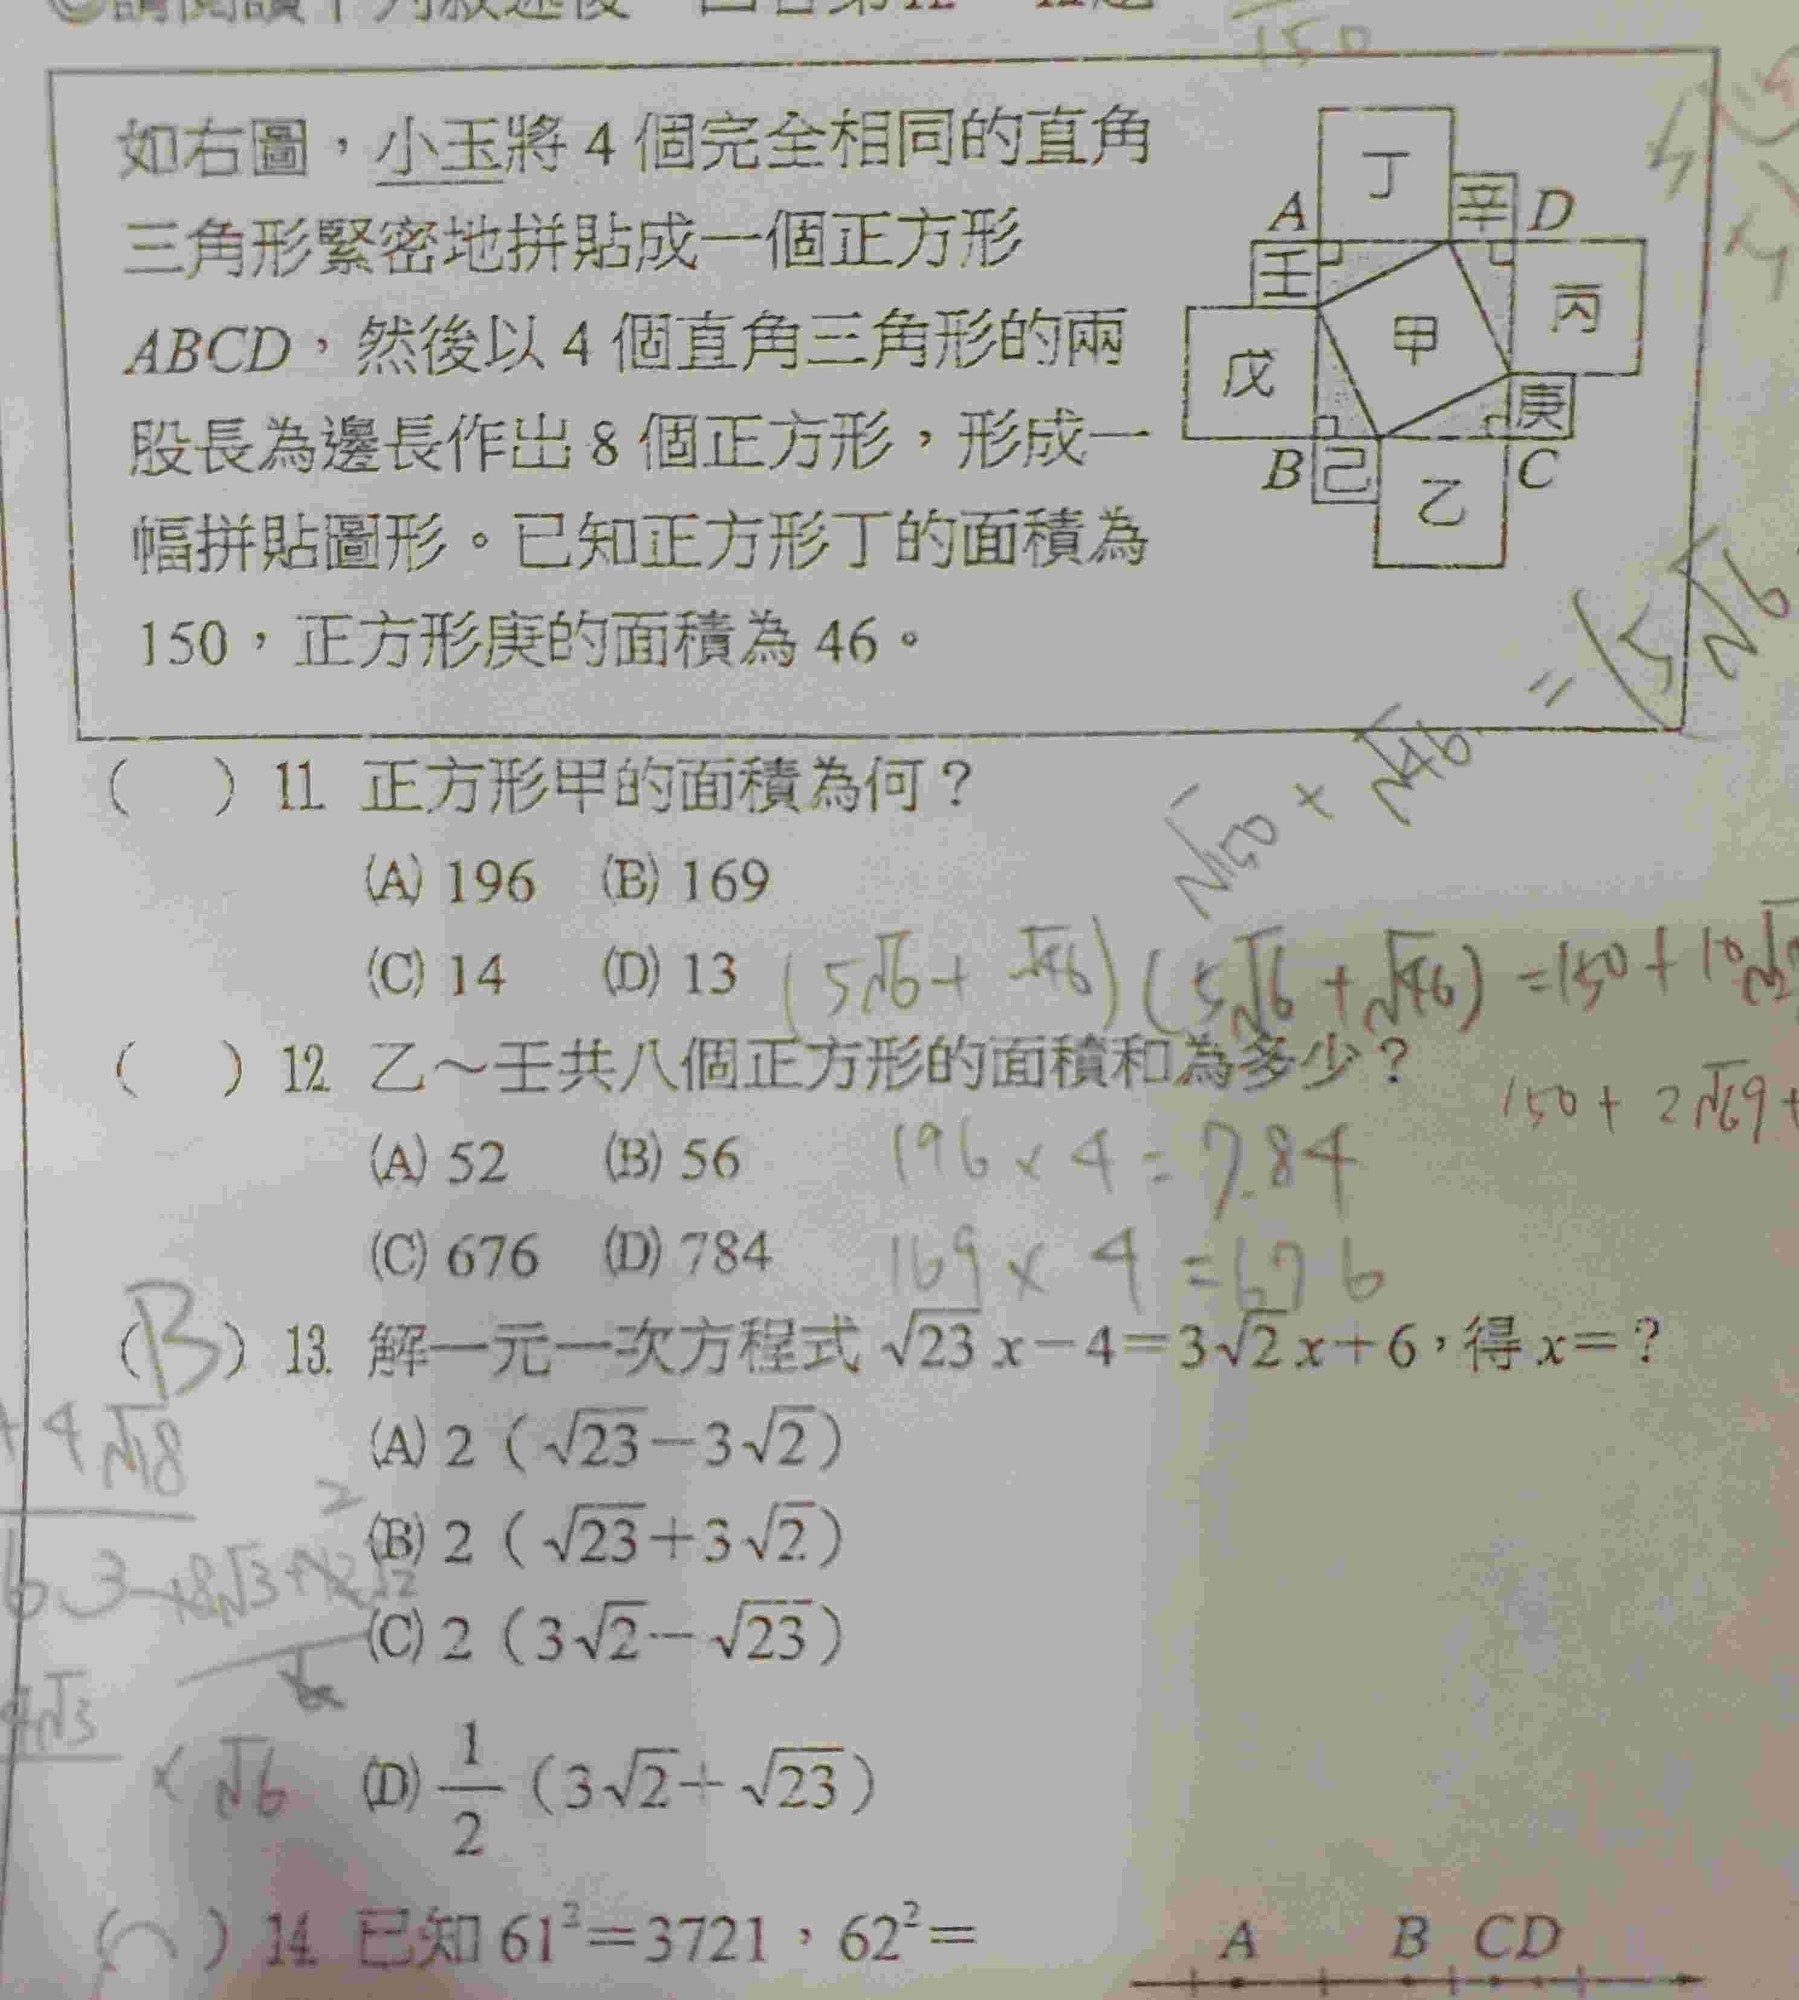 150
如右圖，小玉將 4 個完全相同的直角
三角形緊密地拼貼成一個正方形
ABCD，然後以 4 個直角三角形的兩
股長為邊長作出 8 個正方形，形成一
幅拼貼圖形。已知正方形丁的面積為
150，正方形庚的面積為 46。
丁
A 辛 D
壬 丙
甲
戊
庚
B 己 C
乙
√150 × √46 =
( ) 11. 正方形甲的面積為何？
(A) 196 (B) 169
(C) 14 (D) 13
(5√6 + √46) (5√6 + √46) = 150 +
( ) 12. 乙～壬共八個正方形的面積和為多少？
150 + 2√69 +
(A) 52 (B) 56
196 × 4 = 784
(C) 676 (D) 784
169 × 4 = 676
(B) 13. 解一元一次方程式 √23 x－4＝3√2 x＋6，得 x＝？
(A) 2（√23－3√2）
(B) 2（√23＋3√2）
(C) 2（3√2－√23）
(D) 1/2（3√2＋√23）
+4√18
4√3
× √6
( ) 14. 已知 61²＝3721，62²＝
A B C D